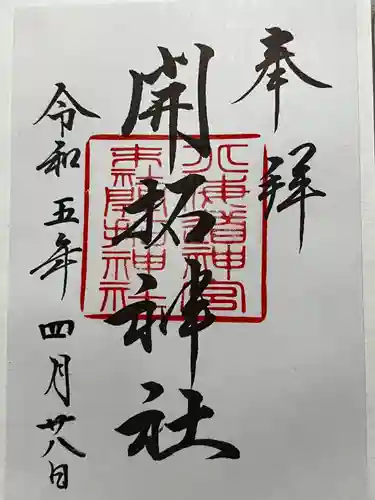 奉拝
開拓神社
北海道神宮
末社開拓神社
令和五年四月廿八日